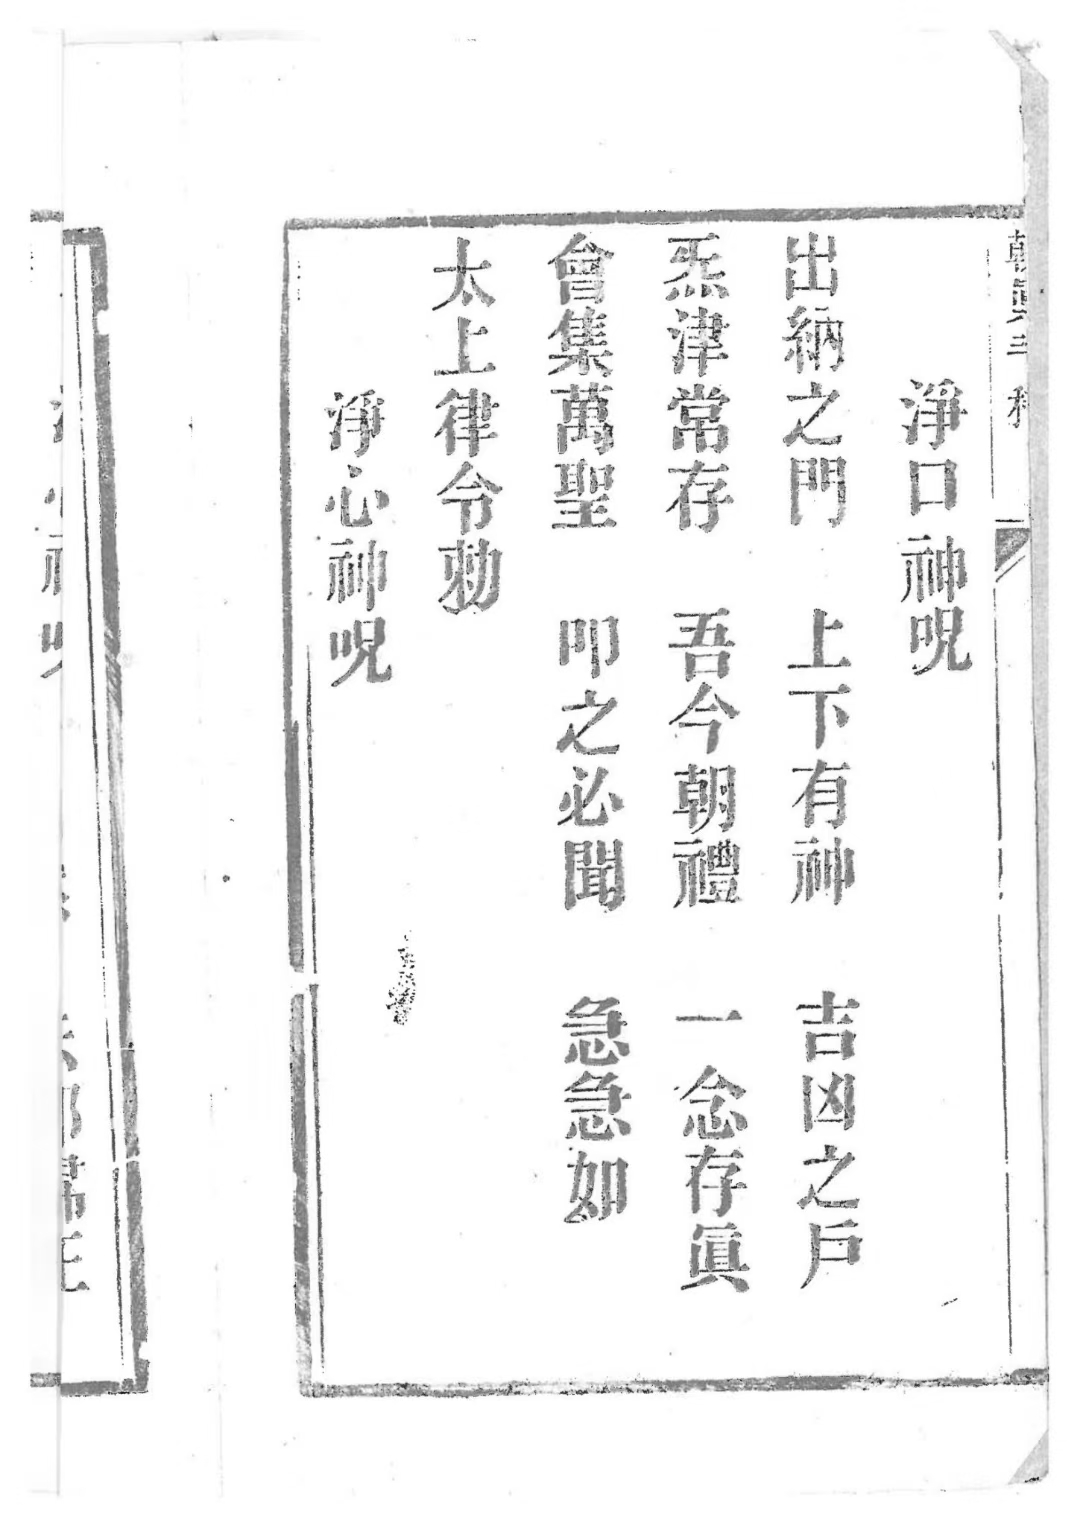 朝眞三科
淨口神呪
出納之門 上下有神 吉凶之戶
炁津常存 吾今朝禮 一念存眞
曾集萬聖 叩之必聞 急急如
太上律令勅
淨心神呪